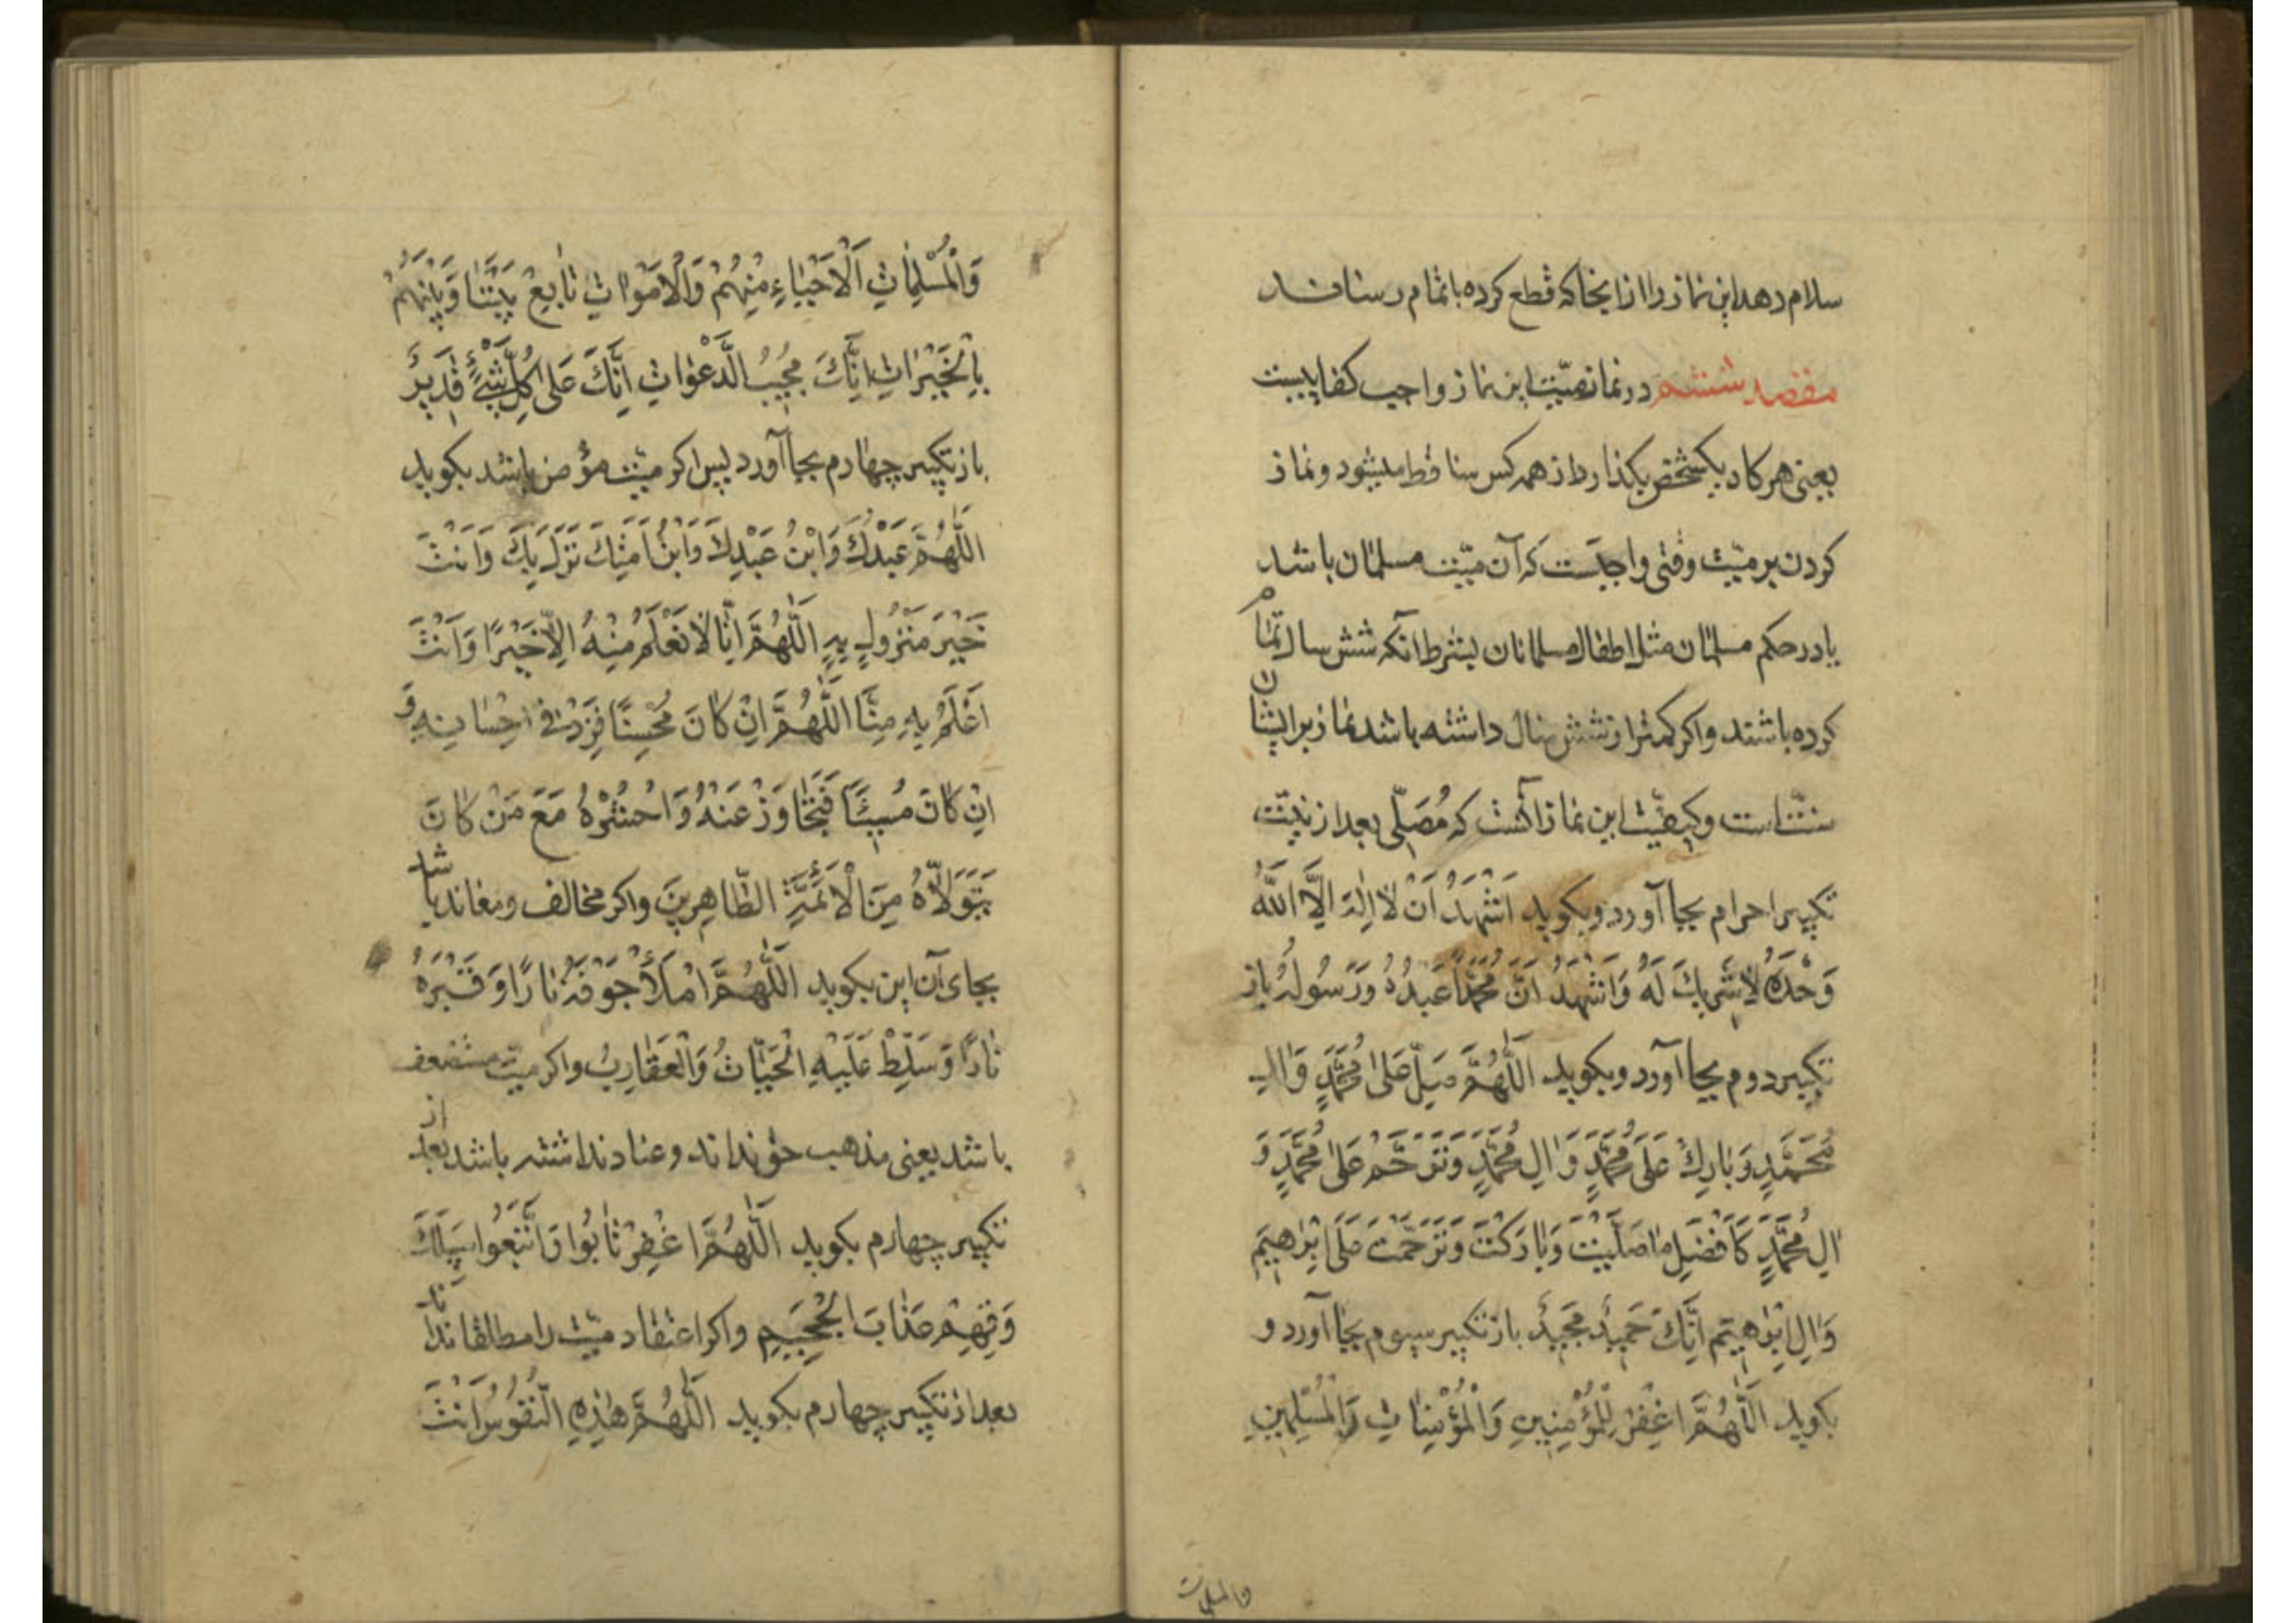 سلام دهد این نماز را از اینجا که قطع کرده باتمام رساند
مقصد ششم در نماز میّت این نماز واجب کفاییست
یعنی هرکاه یکشخص بکذارد از همه کس ساقط میشود و نماز
کردن بر میّت وقتی واجبست که آن میّت مسلمان باشد
یا در حکم مسلمان مثل اطفال مسلمانان بشرط آنکه شش سال تمام
کرده باشند و اکر کمتر از شش سال داشته باشد نماز بر ایشان
سنّت است و کیفیّت این نماز آنست که مُصَلّی بعد از نیّت
تکبیر احرام بجا آورد و بکوید اَشْهَدُ اَنْ لٰا اِلٰهَ اِلَّا اللّٰهُ
وَحْدَهُ لٰا شَرِیكَ لَهُ وَاَشْهَدُ اَنَّ مُحَمَّدًا عَبْدُهُ وَرَسُولُهُ باز
تکبیر دوم بجا آورد و بکوید اَللّٰهُمَّ صَلِّ عَلیٰ مُحَمَّدٍ وَاٰلِ
مُحَمَّدٍ وَبٰارِكْ عَلیٰ مُحَمَّدٍ وَاٰلِ مُحَمَّدٍ وَتَرَحَّمْ عَلیٰ مُحَمَّدٍ وَ
اٰلِ مُحَمَّدٍ کَاَفْضَلِ مٰا صَلَّیْتَ وَبٰارَکْتَ وَتَرَحَّمْتَ عَلیٰ اِبْرٰهِیمَ
وَاٰلِ اِبْرٰهِیمَ اِنَّكَ حَمِیدٌ مَجِیدٌ باز تکبیر سیوم بجا آورد و
بکوید اَللّٰهُمَّ اغْفِرْ لِلْمُؤْمِنِینَ وَالْمُؤْمِنٰاتِ وَالْمُسْلِمِینَ
والمسلمات
وَالْمُسْلِمٰاتِ اَلْاَحْیٰاءِ مِنْهُمْ وَالْاَمْوٰاتِ تٰابِعْ بَیْنَنٰا وَبَیْنَهُمْ
بِالْخَیْرٰاتِ اِنَّكَ مُجِیبُ الدَّعَوٰاتِ اِنَّكَ عَلیٰ کُلِّ شَیْءٍ قَدِیرٌ
باز تکبیر چهارم بجا آورد پس اکر میّت مؤمن باشد بکوید
اَللّٰهُمَّ عَبْدُكَ وَابْنُ عَبْدِكَ وَابْنُ اَمَتِكَ نَزَلَ بِكَ وَاَنْتَ
خَیْرَ مَنْزُولٍ بِهِ اَللّٰهُمَّ اِنّٰا لٰا نَعْلَمُ مِنْهُ اِلّٰا خَیْرًا وَاَنْتَ
اَعْلَمُ بِهِ مِنّٰا اَللّٰهُمَّ اِنْ کٰانَ مُحْسِنًا فَزِدْ فی اِحْسٰانِهِ وَ
اِنْ کٰانَ مُسِیئًا فَتَجٰاوَزْ عَنْهُ وَاحْشُرْهُ مَعَ مَنْ کٰانَ
یَتَوَلّٰاهُ مِنَ الْاَئِمَّةِ الطّٰاهِرِینَ و اکر مخالف و معاند باشد
بجای آن این بکوید اَللّٰهُمَّ امْلَأْ جَوْفَهُ نٰارًا وَقَبْرَهُ
نٰارًا وَسَلِّطْ عَلَیْهِ الْحَیّٰاتُ وَالْعَقٰارِبُ و اکر میت مستضعف
باشد یعنی مذهب حق نداند و عناد نداشته باشد بعد از
تکبیر چهارم بکوید اَللّٰهُمَّ اغْفِرْ تٰابُوا وَاتَّبَعُوا سَبِیلَكَ
وَقِهِمْ عَذٰابَ الْجَحِیمِ و اکر اعتقاد میّت را مطلقا نداند
بعد از تکبیر چهارم بکوید اَللّٰهُمَّ هٰذِهِ النُّفُوسُ اَنْتَ